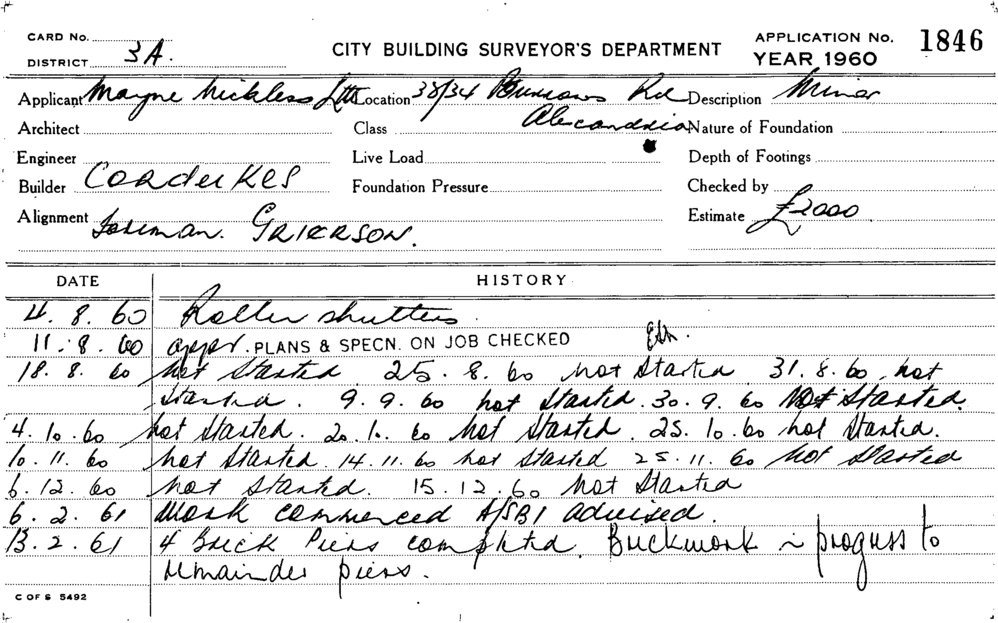 CARD No.
DISTRICT 3A.
CITY BUILDING SURVEYOR'S DEPARTMENT
APPLICATION No. 1846
YEAR 1960
Applicant Mayne Nickless Ltd Location 38/34 Burrows Rd Description Minor
Architect Class Alexandria Nature of Foundation
Engineer Live Load Depth of Footings
Builder Foundation Pressure Checked by
Alignment Foreman. GRIERSON. Estimate £2000
DATE HISTORY
4. 8. 60 Roller shutters.
11. 8. 60 appr. PLANS & SPECN. ON JOB CHECKED
18. 8. 60 Not Started 25. 8. 60 not Started 31. 8. 60. not
Started. 9. 9. 60 not Started. 30. 9. 60 Not Started.
4. 10. 60 not Started. 20. 10. 60 Not Started. 25. 10. 60 not Started.
10. 11. 60 not Started. 14. 11. 60 not Started 25. 11. 60 Not Started
6. 12. 60 not Started. 15. 12. 60 Not Started
6. 2. 61 Work commenced A/SBI advised.
13. 2. 61 4 Brick Piers completed. Brickwork in progress to
remainder piers.
C OF S 5492